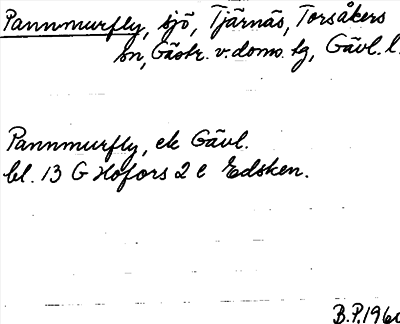 Pannmurfly, sjö, Tjärnäs, Torsåkers
sn, Gästr. v. doms. tg, Gävl. l.
Pannmurfly, ek Gävl.
bl. 13 G Hofors 2 e Edsken.
B.P. 1960